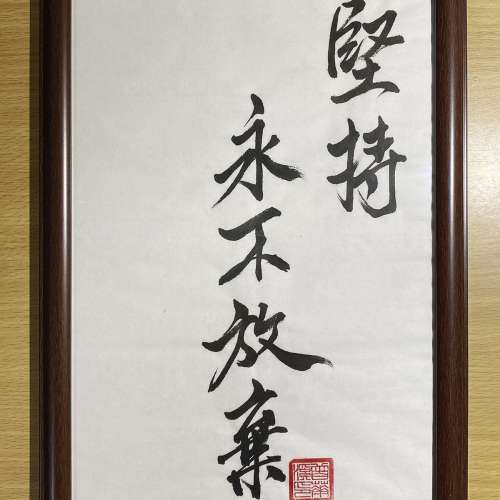 堅持
永不放棄